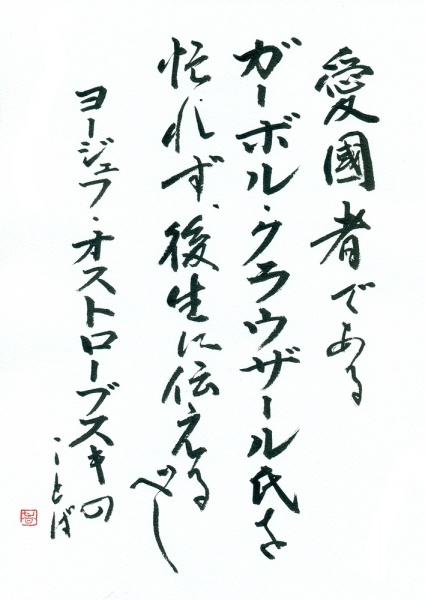 愛國者である
ガーボル・クラウザール氏を
忘れず、後生に伝えるべし
ヨージェフ・オストローブスキの
ことば